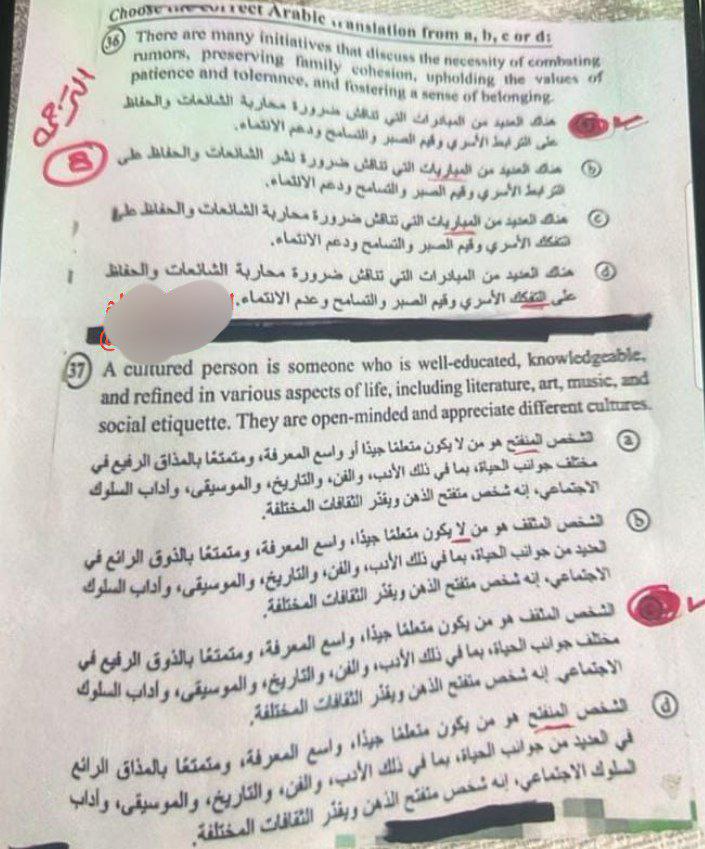 Choose the correct Arabic translation from a, b, c or d:
36 There are many initiatives that discuss the necessity of combating
rumors, preserving family cohesion, upholding the values of
patience and tolerance, and fostering a sense of belonging.
8
هناك العديد من المبادرات التي تناقش ضرورة محاربة الشائعات والحفاظ
على الترابط الأسري وقيم الصبر والتسامح ودعم الانتماء.
b هناك العديد من المباريات التي تناقش ضرورة نشر الشائعات والحفاظ على
الترابط الأسري وقيم الصبر والتسامح ودعم الانتماء.
c هناك العديد من المباريات التي تناقش ضرورة محاربة الشائعات والحفاظ على
التفكك الأسري وقيم الصبر والتسامح ودعم الانتماء.
d هناك العديد من المبادرات التي تناقش ضرورة محاربة الشائعات والحفاظ
على التفكك الأسري وقيم الصبر والتسامح وعدم الانتماء.
37 A cultured person is someone who is well-educated, knowledgeable,
and refined in various aspects of life, including literature, art, music, and
social etiquette. They are open-minded and appreciate different cultures.
a الشخص المنفتح هو من لا يكون متعلمًا جيدًا أو واسع المعرفة، ومتمتعًا بالمذاق الرفيع في
مختلف جوانب الحياة، بما في ذلك الأدب، والفن، والتاريخ، والموسيقى، وأداب السلوك
الاجتماعي، إنه شخص متفتح الذهن ويقدّر الثقافات المختلفة.
b الشخص المثقف هو من لا يكون متعلمًا جيدًا، واسع المعرفة، ومتمتعًا بالذوق الرائع في
العديد من جوانب الحياة، بما في ذلك الأدب، والفن، والتاريخ، والموسيقى، وأداب السلوك
الاجتماعي، إنه شخص متفتح الذهن ويقدّر الثقافات المختلفة.
الشخص المثقف هو من يكون متعلمًا جيدًا، واسع المعرفة، ومتمتعًا بالذوق الرفيع في
مختلف جوانب الحياة، بما في ذلك الأدب، والفن، والتاريخ، والموسيقى، وأداب السلوك
الاجتماعي. إنه شخص متفتح الذهن ويقدّر الثقافات المختلفة.
d الشخص المنفتح هو من يكون متعلمًا جيدًا، واسع المعرفة، ومتمتعًا بالمذاق الرائع
في العديد من جوانب الحياة، بما في ذلك الأدب، والفن، والتاريخ، والموسيقى، وأداب
السلوك الاجتماعي، إنه شخص متفتح الذهن ويقدّر الثقافات المختلفة.